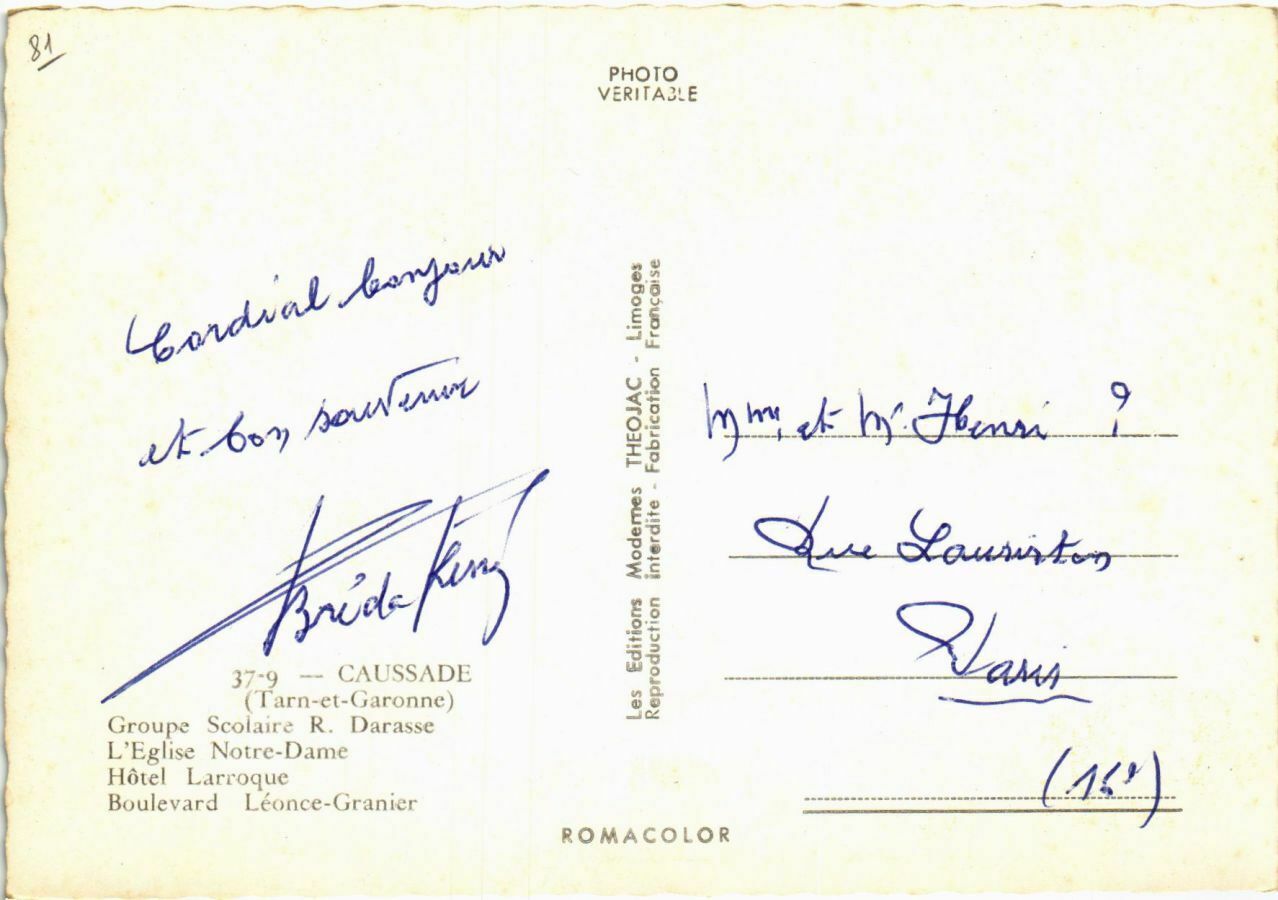 81
PHOTO
VERITABLE
Cordial bonjour
et bon souvenir
Bréda
37-9 — CAUSSADE
(Tarn-et-Garonne)
Groupe Scolaire R. Darasse
L'Eglise Notre-Dame
Hôtel Larroque
Boulevard Léonce-Granier
Les Editions Modernes THEOJAC - Limoges
Reproduction interdite - Fabrication Française
Mme et Mr Henri ?
Rue Lauriston
Paris
(16e)
ROMACOLOR